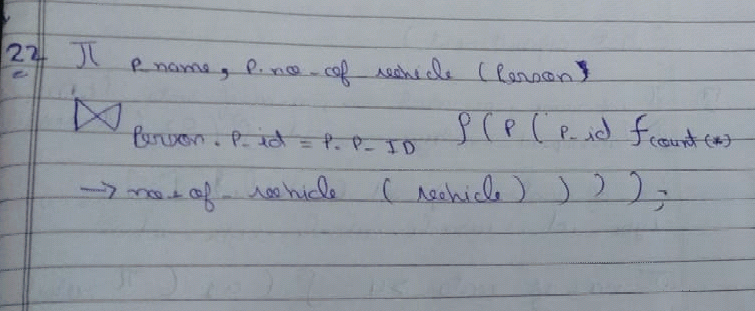 22 π p name, p.no-of vehicle (Person)
⋈ Person.P-id = P.P-ID ρ(P(P-id f count(*)
→ no.of-vehicle (vehicle))));